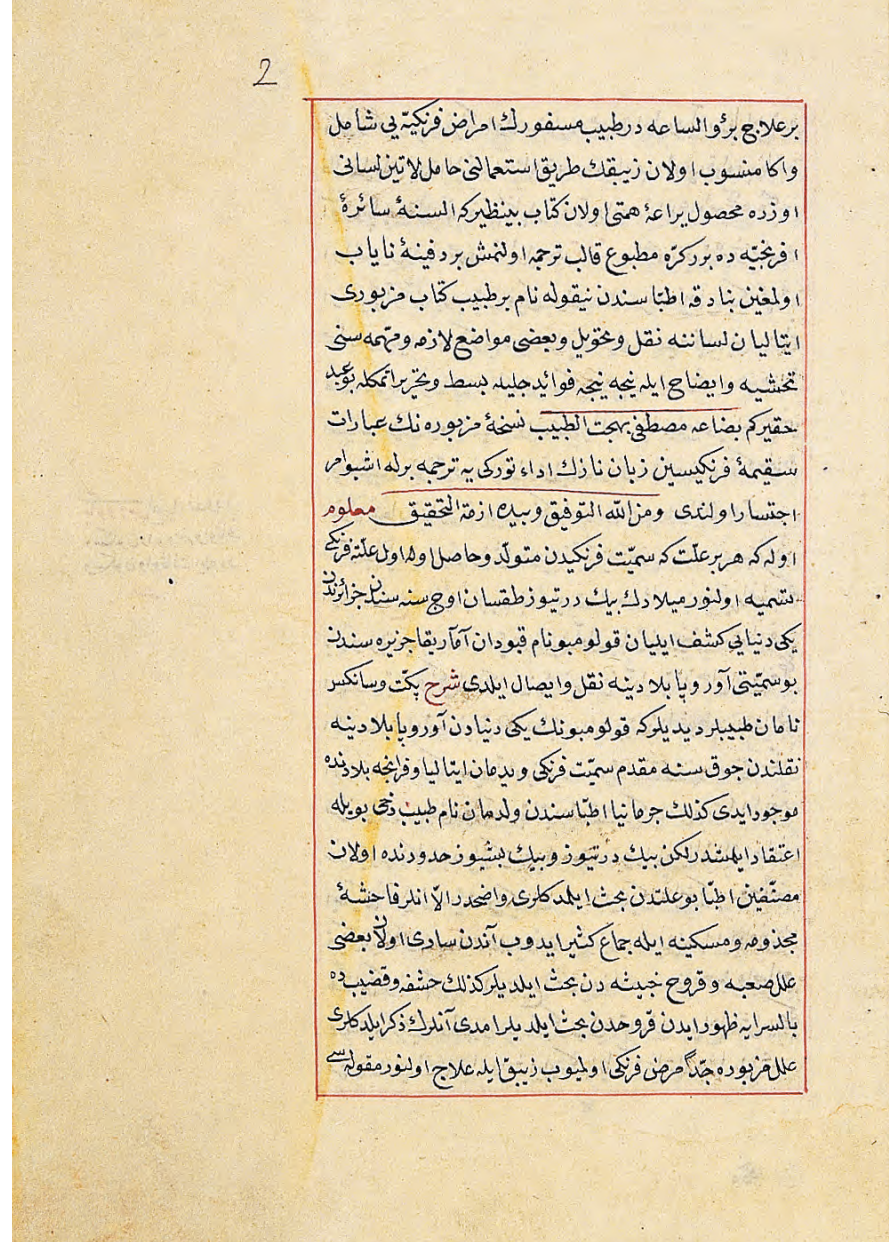 2
بر علاج برؤ الساعه در طبيب مسفورك امراض فرنكيّه يى شامل
واكا منسوب اولان زيبقك طريق استعمالنى حامل لاتين لسانى
اوزره محصول يراعهٔ همتى اولان كتاب بينظير كه السنهٔ سائرهٔ
افرنجيّه ده برر كرّه مطبوع قالب ترجمه اولنمش بر دفينهٔ ناياب
اولمغين بنادقه اطبّا سندن نيقوله نام بر طبيب كتاب مزبورى
ايتاليان لساننه نقل وتحويل وبعضى مواضع لازمه ومهمه سنى
تحشيه وايضاح ايله نيجه نيجه فوائد جليله بسط وتحرير اتمكله بو عبد
حقير كم بضاعه مصطفى بهجت الطبيب نسخهٔ مزبوره نك عبارات
سقيمهٔ فرنكيسين زبان نازك اداء توركى يه ترجمه برله اشبو امر
اجتسار اولندى ومن الله التوفيق وبيده ازمة التحقيق معلوم
اوله كه هر بر علّت كه سميّت فرنكيدن متولّد وحاصل اوله اول علّته فرنكى
تسميه اولنور ميلادك بيك درتيوز طقسان اوج سنه سنده جزائرندن
يكى دنيايى كشف ايليان قولومبو نام قبودان آمريقا جزيره سندن
بو سميّتى آوروپا بلادينه نقل وايصال ايلدى شرح پكّت وسانكس
نامان طبيبلر ديديلر كه قولومبونك يكى دنيادن آوروپا بلادينه
نقلندن جوق سنه مقدم سميّت فرنكى ويدمان ايتاليا وفرانجه بلادنده
موجود ايدى كذلك جرمانيا اطبّا سندن ولدمان نام طبيب دخى بويله
اعتقاد ايلمشدر لكن بيك درتيوز وبيك بشيوز حدودنده اولان
مصنّفين اطبّا بو علتدن بحث ايلدكلرى واضحدر الّا انلر فاحشهٔ
مجذومه ومسكينه ايله جماع كثير ايدوب آندن سارى اولان بعضى
علل صعبه وقروح خبيثه دن بحث ايلديلر كذلك حشفه وقضيب ده
بالسرايه ظهور ايدن قروحدن بحث ايلديلر امدى آنلرك ذكر ايلدكلرى
علل مزبوره جدّا مرض فرنكى اولميوب زيبق ايله علاج اولنور مقوله سى